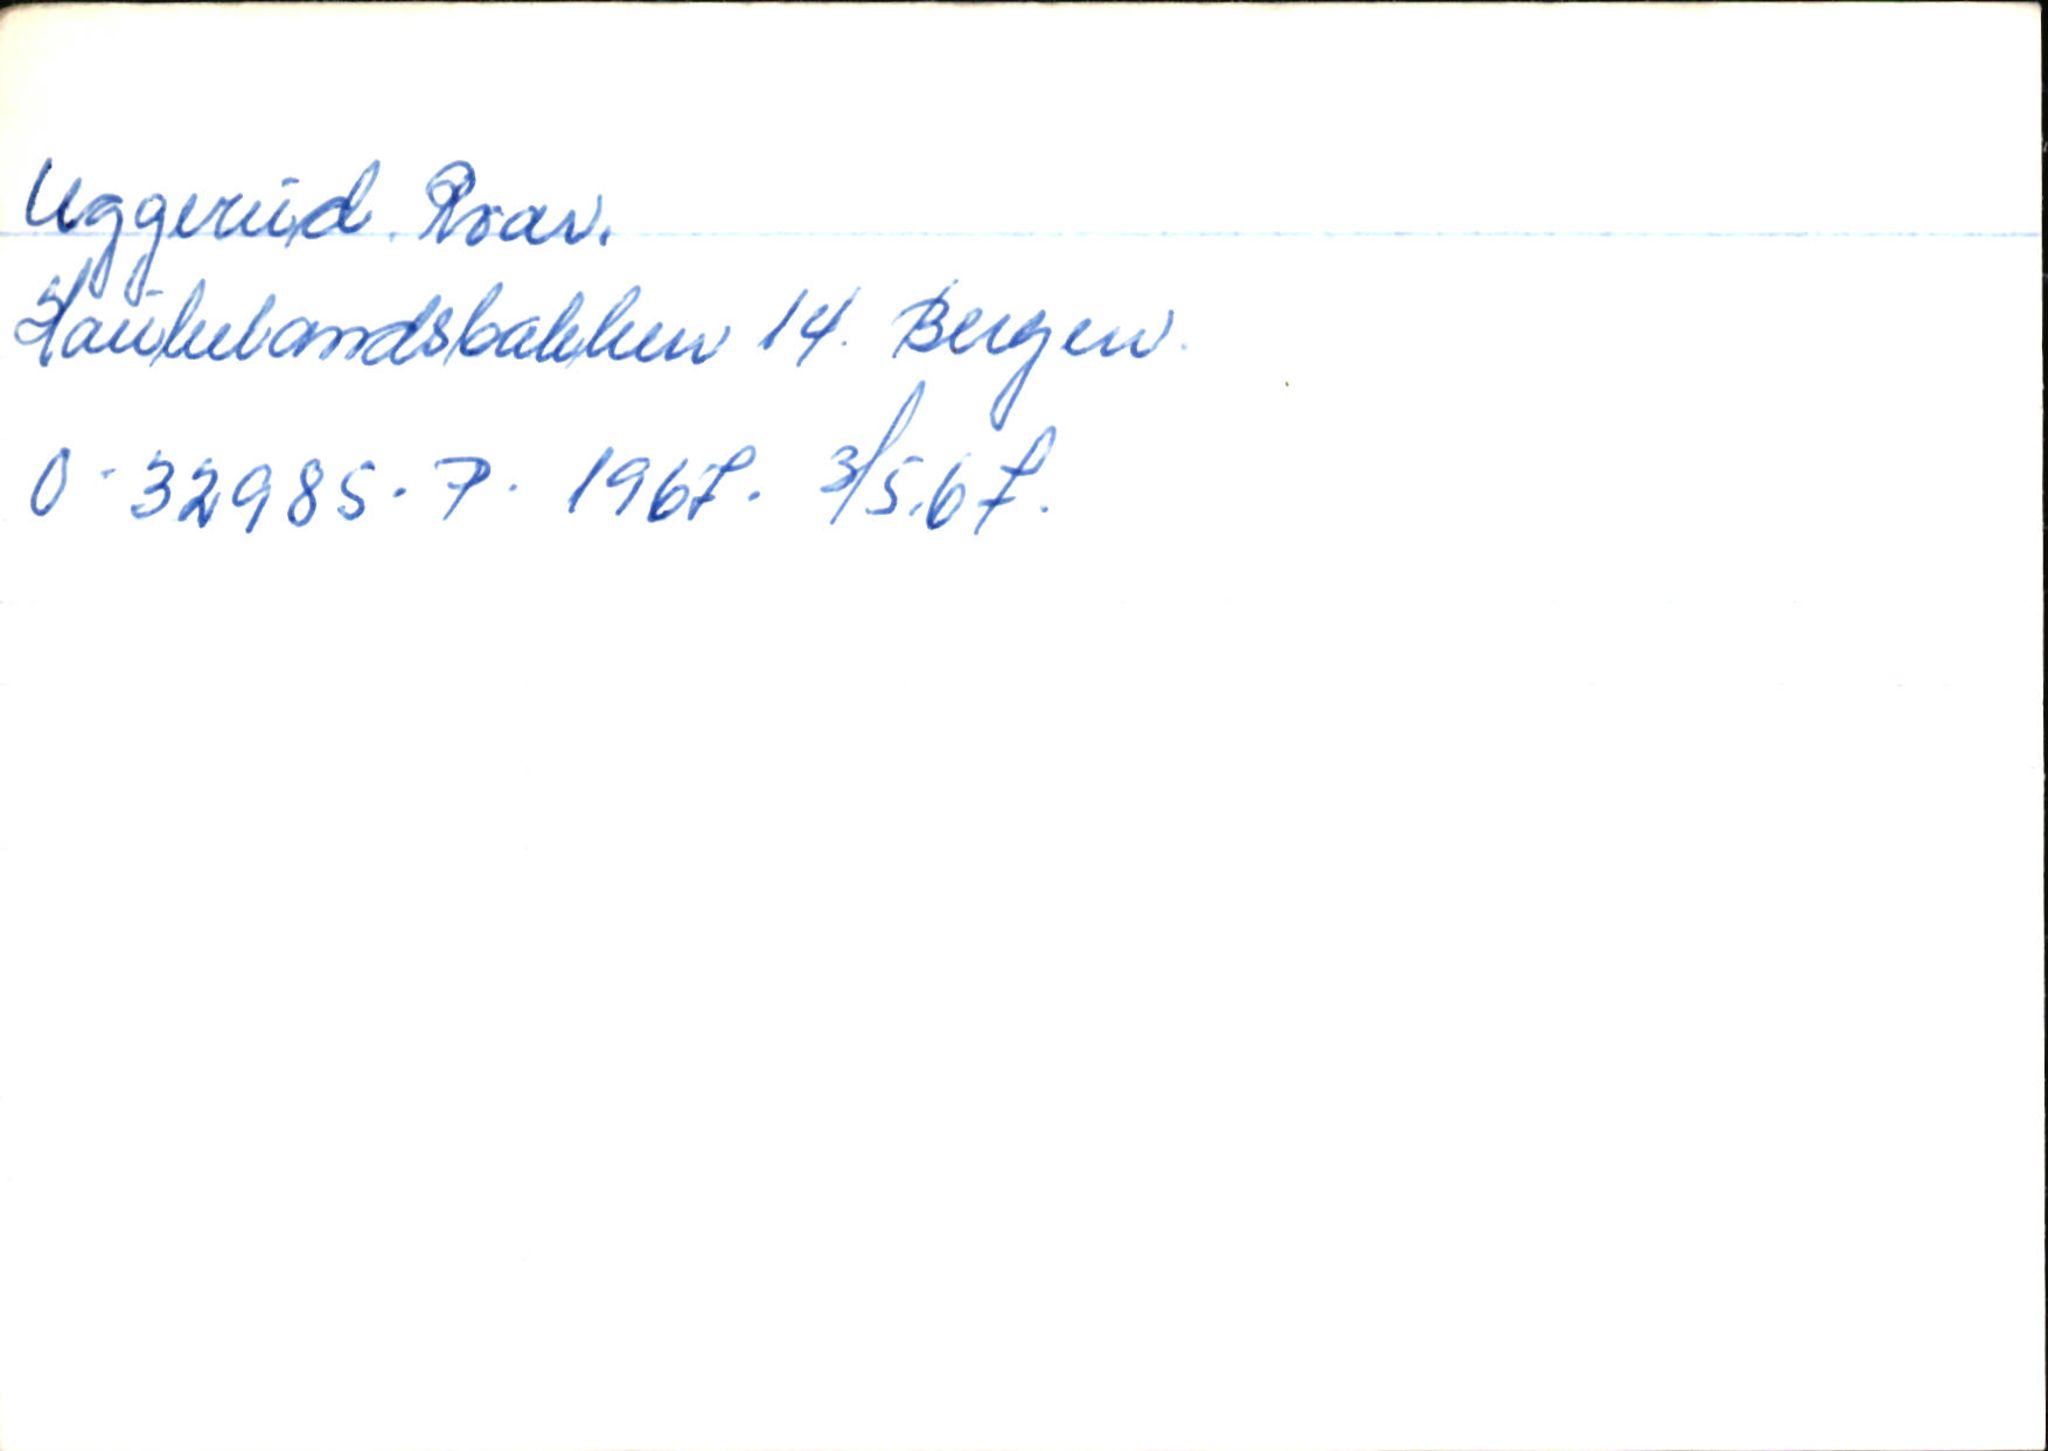 Uggerud. Roar.
Haukelandsbakken 14. Bergen.
O-32985.7. 1967. 3/5.67.